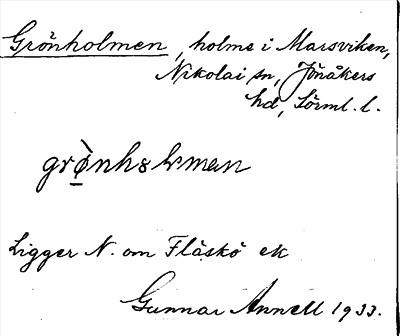 Grönholmen, holme i Marsviken,
Nikolai sn, Jönåkers
hd, Sörml. l.
grø̀nhɔlmən
Ligger N. om Fläskö ek
Gunnar Annell 1933.